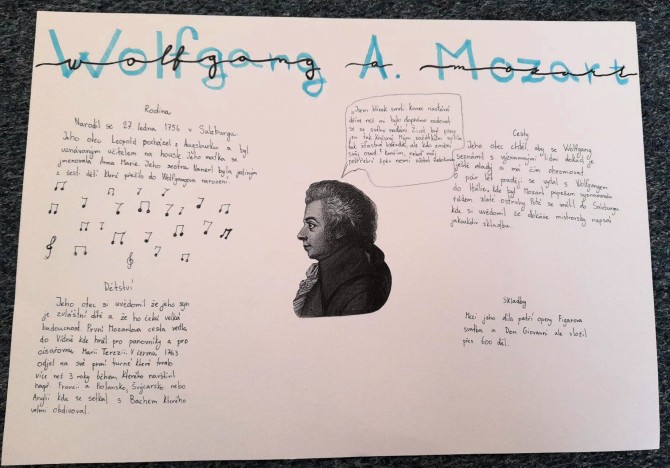 Wolfgang A. Mozart
wolfgang a mozart
Rodina
Narodil se 27. ledna 1756 v Salzburgu.
Jeho otec Leopold pocházel z Augsburku a byl
uznávaným učitelem na housle. Jeho matka se
jmenovala Anna Marie. Jeho sestra Nanerl byla jediným
z šesti dětí které přežilo do Wolfgangova narození.
Dětství
Jeho otec si uvědomil že jeho syn
je zvláštní dítě a že ho čeká velká
budoucnost. První Mozartova cesta vedla
do Vídně kde hrál pro panovníky a pro
císařovnu Marii Terezii. V červnu 1763
odjel na své první turné které trvalo
více než 3 roky během kterého navštívil
např. Francii a Holandsko, Švýcarsko nebo
Anglii kde se setkal s Bachem kterého
velmi obdivoval.
„Jsem blízek smrti konec nastává
dříve než mi bylo dopřáno radovat
se ze svého nadání. Život byl přeci
jen tak krásný.
Cesty
Jeho otec chtěl, aby se Wolfgang
seznámil s významnými lidmi dokud je
ještě mladý a má čím ohromovat.
O pár let později se vydal s Wolfgangem
do Itálie, kde byl Mozart papežem vyznamenán
řádem zlaté ostruhy. Poté se vrátil do Salzburgu
kde si uvědomil že dokáže mistrovsky napsat
jakoukoliv skladbu.
Skladby
Mezi jeho díla patří opery Figarova
svatba a Don Giovanni ale složil
přes 600 děl.